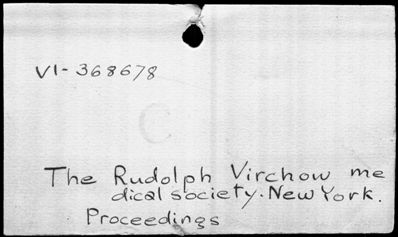 VI-368678
The Rudolph Virchow me
dical society. New York.
Proceedings